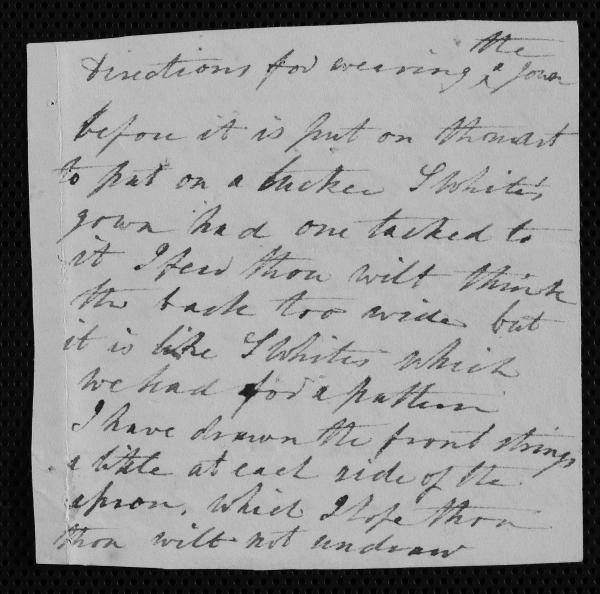 Directions for wearing ^ the Gown
before it is put on thou art
to put on a tucker S White's
gown had one tacked to
it I fear thou wilt think
the back too wide but
it is like S Whites which
we had for a pattern
I have drawn the front strings
a little at each side of the
apron, which I hope thou
thou wilt not undraw